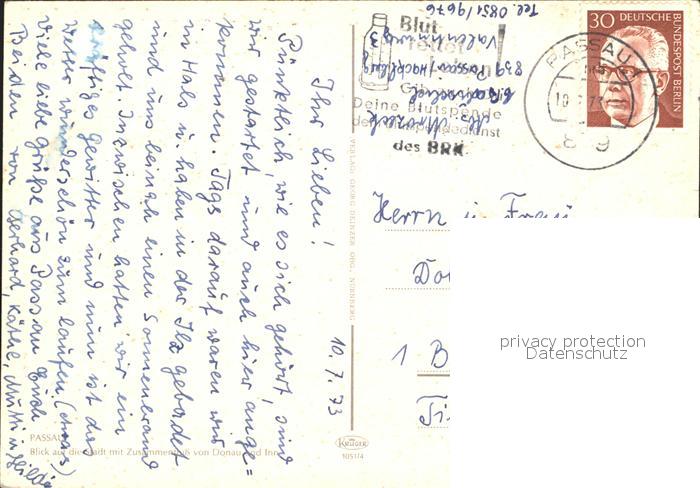 10.7.73
Ihr Lieben!
Pünktlich, wie es sich gehört, sind
wir gestartet und auch hier ange=
kommen. Tags darauf waren wir
in Hals u. haben in der Ilz gebadet
und uns beinah einen Sonnenbrand
geholt. Inzwischen hatten wir ein
kräftiges Gewitter und nun ist das
Wetter wunderschön zum laufen. (etwas)
Viele liebe Grüße aus Passau Euch
Beiden von Gerhard, Käthe, Mutti u. Hilde
PASSAU
Blick auf die Stadt mit Zusammenfluß von Donau und Inn
VERLAG: GEORG DEINZER OHG, NÜRNBERG
KRÜGER
1051/4
859 Passau/Hacklberg
Tel. 0851/9676
Blut
rettet
Leben
Deine Blutspende
dem Blutspendedienst
des BRK
PASSAU
10 7 73
8 9
30 DEUTSCHE
BUNDESPOST BERLIN
Herrn u. Frau
1 B
privacy protection
Datenschutz